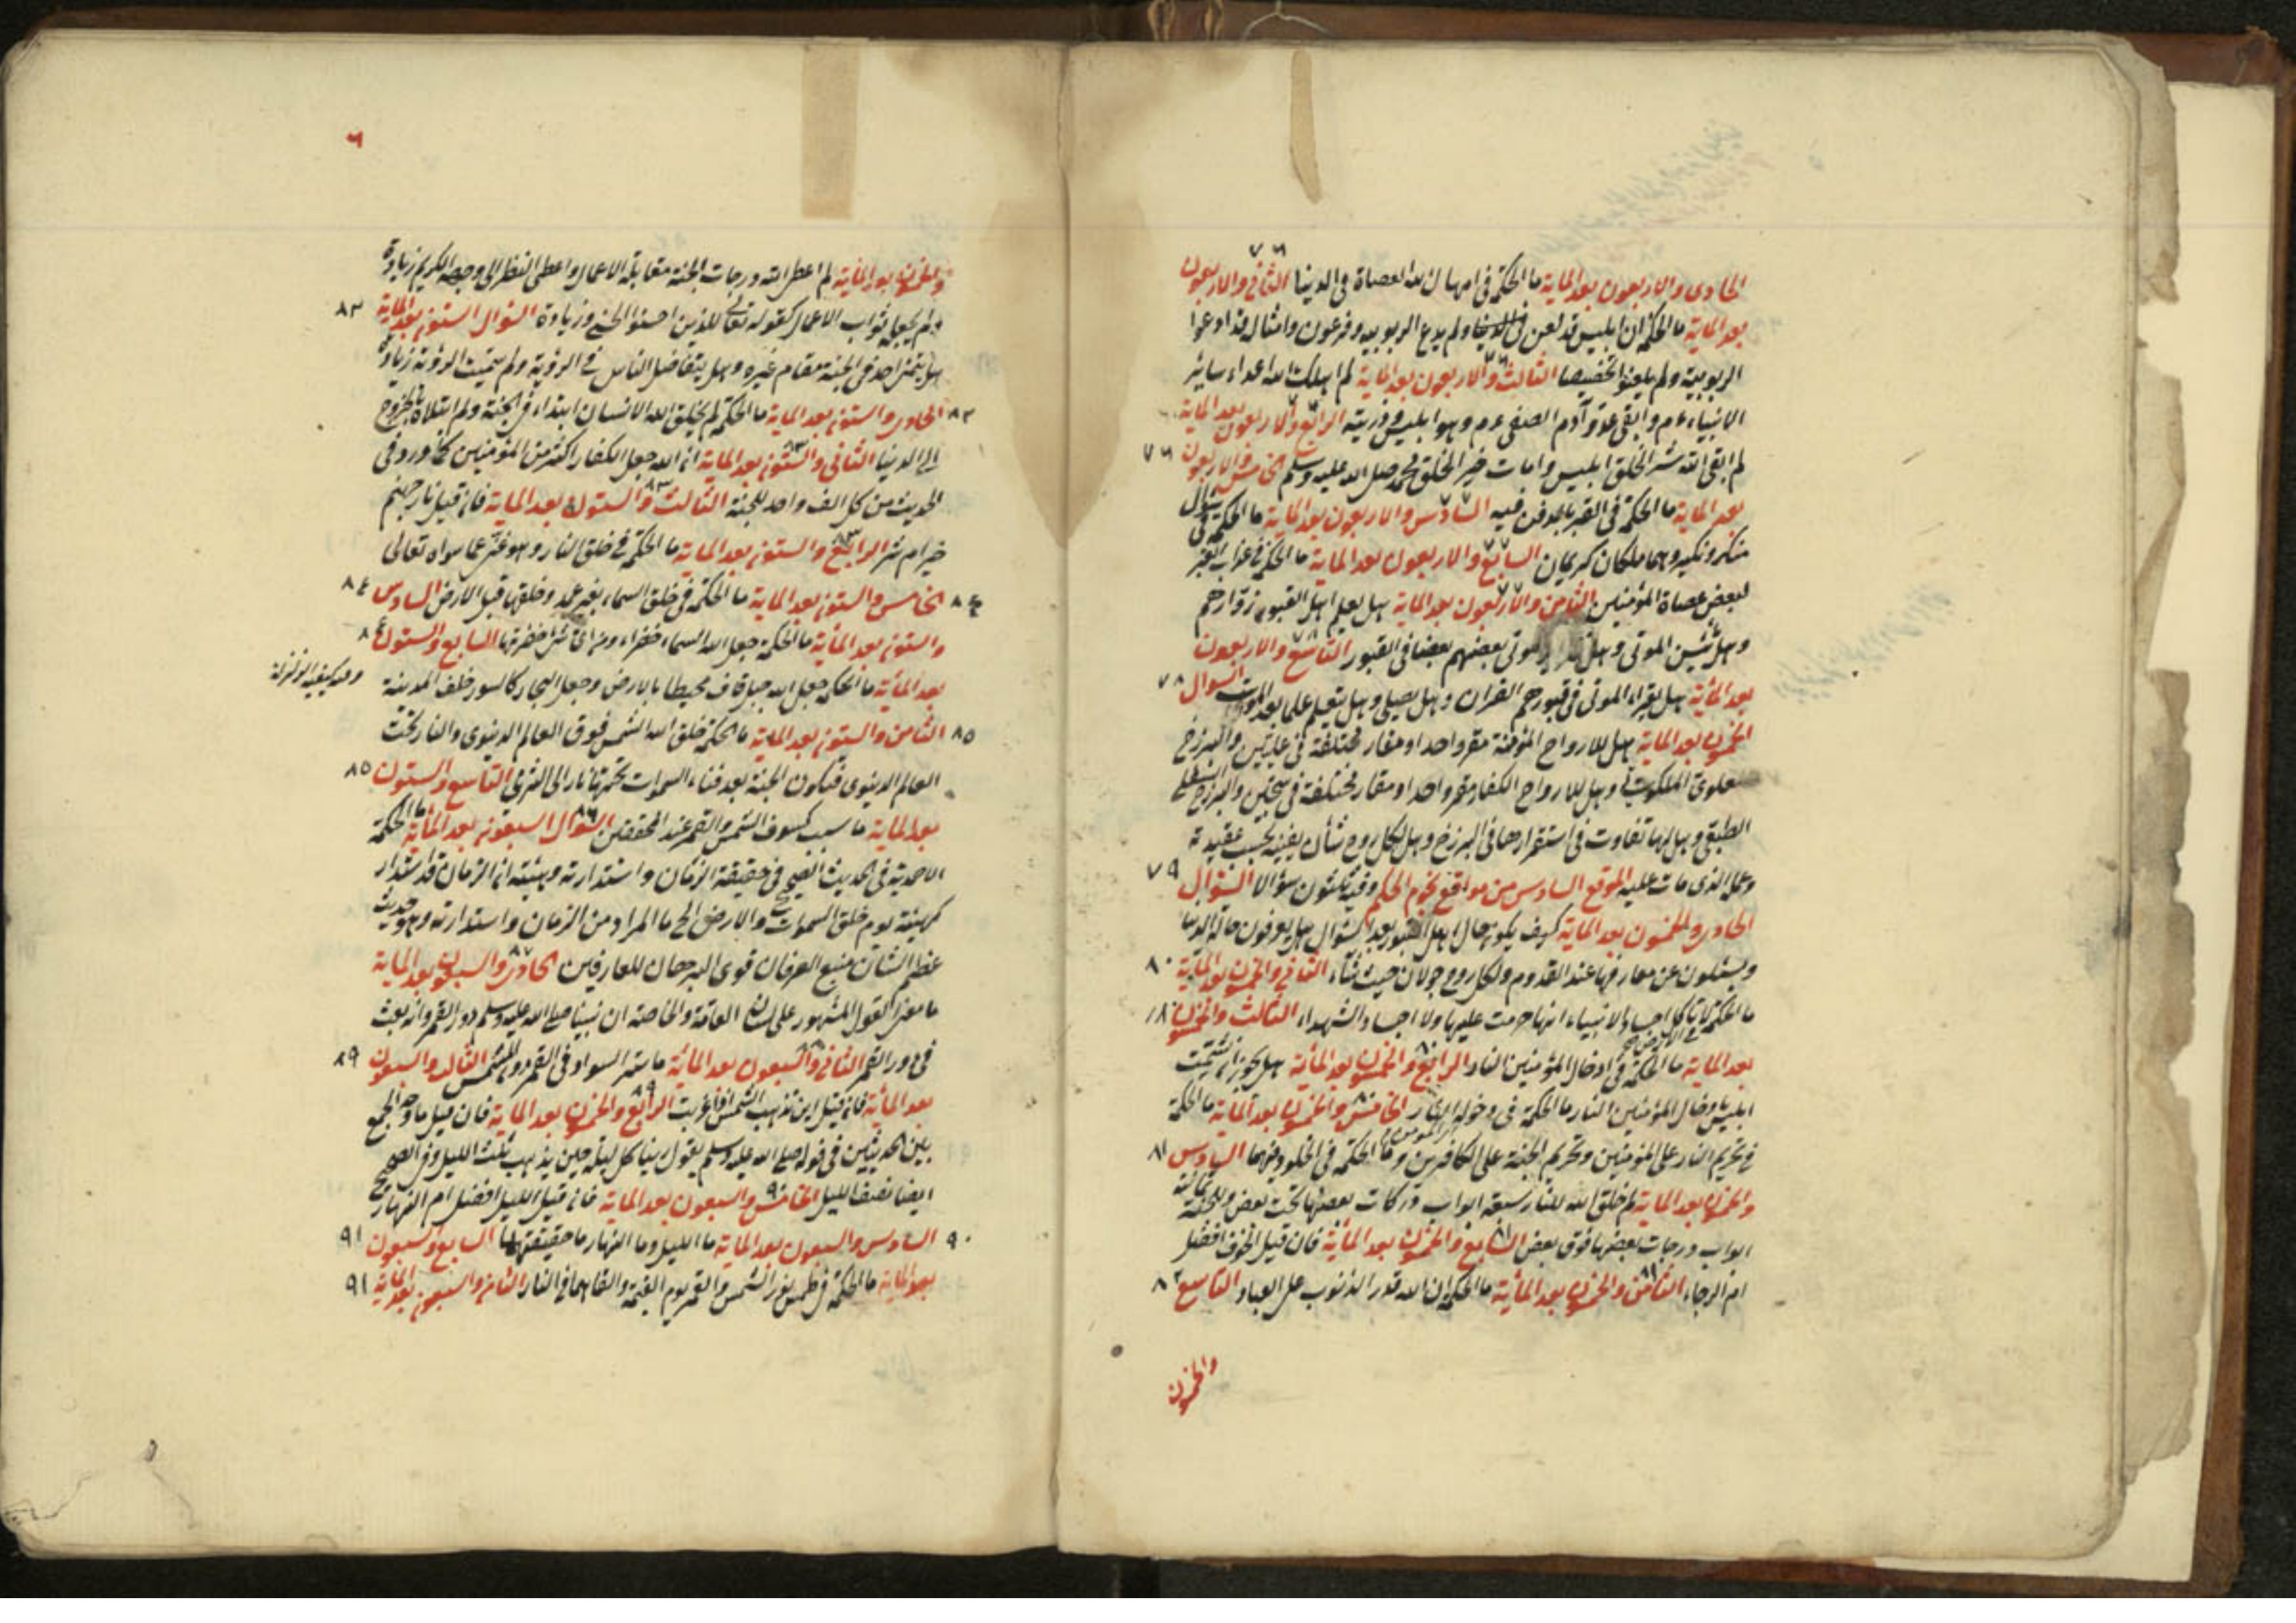 الحادى والاربعون بعد الماية ما الحكمة فى امهال الله العصاة فى الدنيا الثانى والاربعون
٧٦
بعد الماية ما الحكمة ان ابليس قد لعن فى الدنيا ولم يدع الربوبيه وفرعون وامثاله قد ادعوا
الربوبية ولم يلعنوا تخصيصا الثالث والاربعون بعد الماية لم اهلك الله اعداء سائر
الانبياء ءم وابقى عدو آدم الصفى ءم وهو ابليس وذريته الرابع والاربعون بعد الماية
لم ابقى الله شر الخلق ابليس وامات خير الخلق محمد صلى الله عليه وسلم الخامس والاربعون
٧٦
بعد الماية ما الحكمة فى القبر بالدفن فيه السادس والاربعون بعد الماية ما الحكمة فى سؤال
منكر ونكير وهما ملكان كريمان السابع والاربعون بعد الماية ما الحكمة فى عذاب القبر
لبعض عصاة المؤمنين الثامن والاربعون بعد الماية هل يعلم اهل القبور زوارهم
وهل الموتى وهل الموتى بعضهم بعضا فى القبور التاسع والاربعون
بعد المائة هل يقراء الموتى فى قبورهم القران وهل يصلى وهل يتعلم علما بعد الموت السوال
٧٨
الخمسون بعد الماية هل للارواح المؤمنة مقر واحد او مقار مختلفة فى عليين والبرزخ
العلوى الملكوتى وهل للارواح الكفار مقر واحد او مقار مختلفة فى سجين والبرزخ السفلى
الطبقى وهل لها تفاوت فى استقرارها فى البرزخ وهل لكل روح شأن يغنيه بحسب عقيدته
وعمله الذى مات عليه الموقع السادس من مواقع نجوم الحكم وفيه ثلثون سؤالا السؤال
٧٩
الحادى والخمسون بعد الماية كيف يكون حال اهل القبور بعد السؤال هل يعرفون حالة الدنيا
ويسئلون عن معارفها عند القدوم ولكل روح جولان حيث شاء الثانى والخمسون بعد الماية
٨٠
ما الحكمة لا تأكل اجساد الانبياء انها حرمت عليها ولا اجساد الشهداء الثالث والخمسون
بعد الماية ما الحكمة فى ادخال المؤمنين النار الرابع والخمسون بعد المائة هل يجوز ان يشمت
ابليس بادخال المؤمنين النار ما الحكمة فى دخوله النار الخامس والخمسون بعد الماية ما الحكمة
فى تحريم النار على المؤمنين وتحريم الجنة على الكافرين وما الحكمة فى الخلود فيهما السادس
٨١
والخمسون بعد الماية لم خلق الله للنار سبعة ابواب دركات بعضها تحت بعض وللجنة ثمانية
ابواب درجات بعضها فوق بعض السابع والخمسون بعد المائة فان قيل الخوف افضل
ام الرجاء الثامن والخمسون بعد المائة ما الحكمة ان الله قدر الذنوب على العباد التاسع
٨٢
والخمسون
٦
والخمسون بعد الماية لم اعطى الله درجات الجنة مقابلة الاعمال واعطى النظر الى وجهه الكريم زيادة
ولم يجعله ثواب الاعمال كقوله تعالى للذين احسنوا الحسنى وزيادة السؤال الستون بعد الماية
٨٣
هل يتمنى احد فى الجنة مقام غيره وهل يتفاضل الناس فى الرؤية ولم سميت الرؤية زيادة
الحادى والستون بعد الماية ما الحكمة لم يخلق الله الانسان ابتداء فى الجنة ولم ابتلاه بالخروج
الى الدنيا الثانى والستون بعد الماية ان الله جعل الكفار اكثر من المؤمنين كما ورد فى
الحديث من كل الف واحد للجنة الثالث والستون بعد الماية فان قيل نار جهنم
خير ام شر الرابع والستون بعد الماية ما الحكمة فى خلق النار وهو غنى عما سواه تعالى
الخامس والستون بعد الماية ما الحكمة فى خلق السماء بغير عمد وخلقها قبل الارض السادس
٨٤
والستون بعد المائة ما الحكمة جعل الله السماء خضراء ومن اى شئ خضرتها السابع والستون
بعد المائة ما الحكمة جعل الله جبل قاف محيطا بالارض وجعل البحار كالسور خلف المدينة
وفيه كيفية الزلزلة
٨٥ الثامن والستون بعد الماية ما الحكمة خلق الله الشمس فوق العالم الدنيوى والنار تحت
العالم الدنيوى فتكون الجنة بعد فناء السموات تحتها نار الى الثرى التاسع والستون
٨٥
بعد الماية ما سبب كسوف الشمس والقمر عند المحققين السؤال السبعون بعد المائة ما الحكمة
الاحمدية فى الحديث الصحيح فى حقيقة الزمان واستدارته وهيئته ان الزمان قد استدار
كهيئته يوم خلق السموات والارض الخ ما المراد من الزمان واستدارته وهو حديث
عظم الشان منبع العرفان قوى البرهان للعارفين الحادى والسبعون بعد الماية
ما معنى القول المشهور على لسان العامة والخاصة ان نبينا صلى الله عليه وسلم دور القمر وانه بعث
فى دور القمر الثانى والسبعون بعد المائة ما سر السواد فى القمر دون الشمس الثالث والسبعون
٨٩
بعد المائة فان قيل اين تذهب الشمس اذا غربت الرابع والخمسون بعد الماية فان قيل ما وجه الجمع
بين الحديثين فى قوله صلى الله عليه وسلم يقول ربنا كل ليلة حين يذهب ثلث الليل وفى الصحيح
ايضا نصف الليل الخامس والسبعون بعد الماية فان قيل الليل افضل ام النهار
٩٠ السادس والسبعون بعد الماية ما الليل وما النهار ما حقيقتهما السابع والسبعون
٩١
بعد الماية ما الحكمة فى طمس نور الشمس والقمر يوم القيمة والقاهما فى النار الثامن والسبعون بعد الماية
٩١